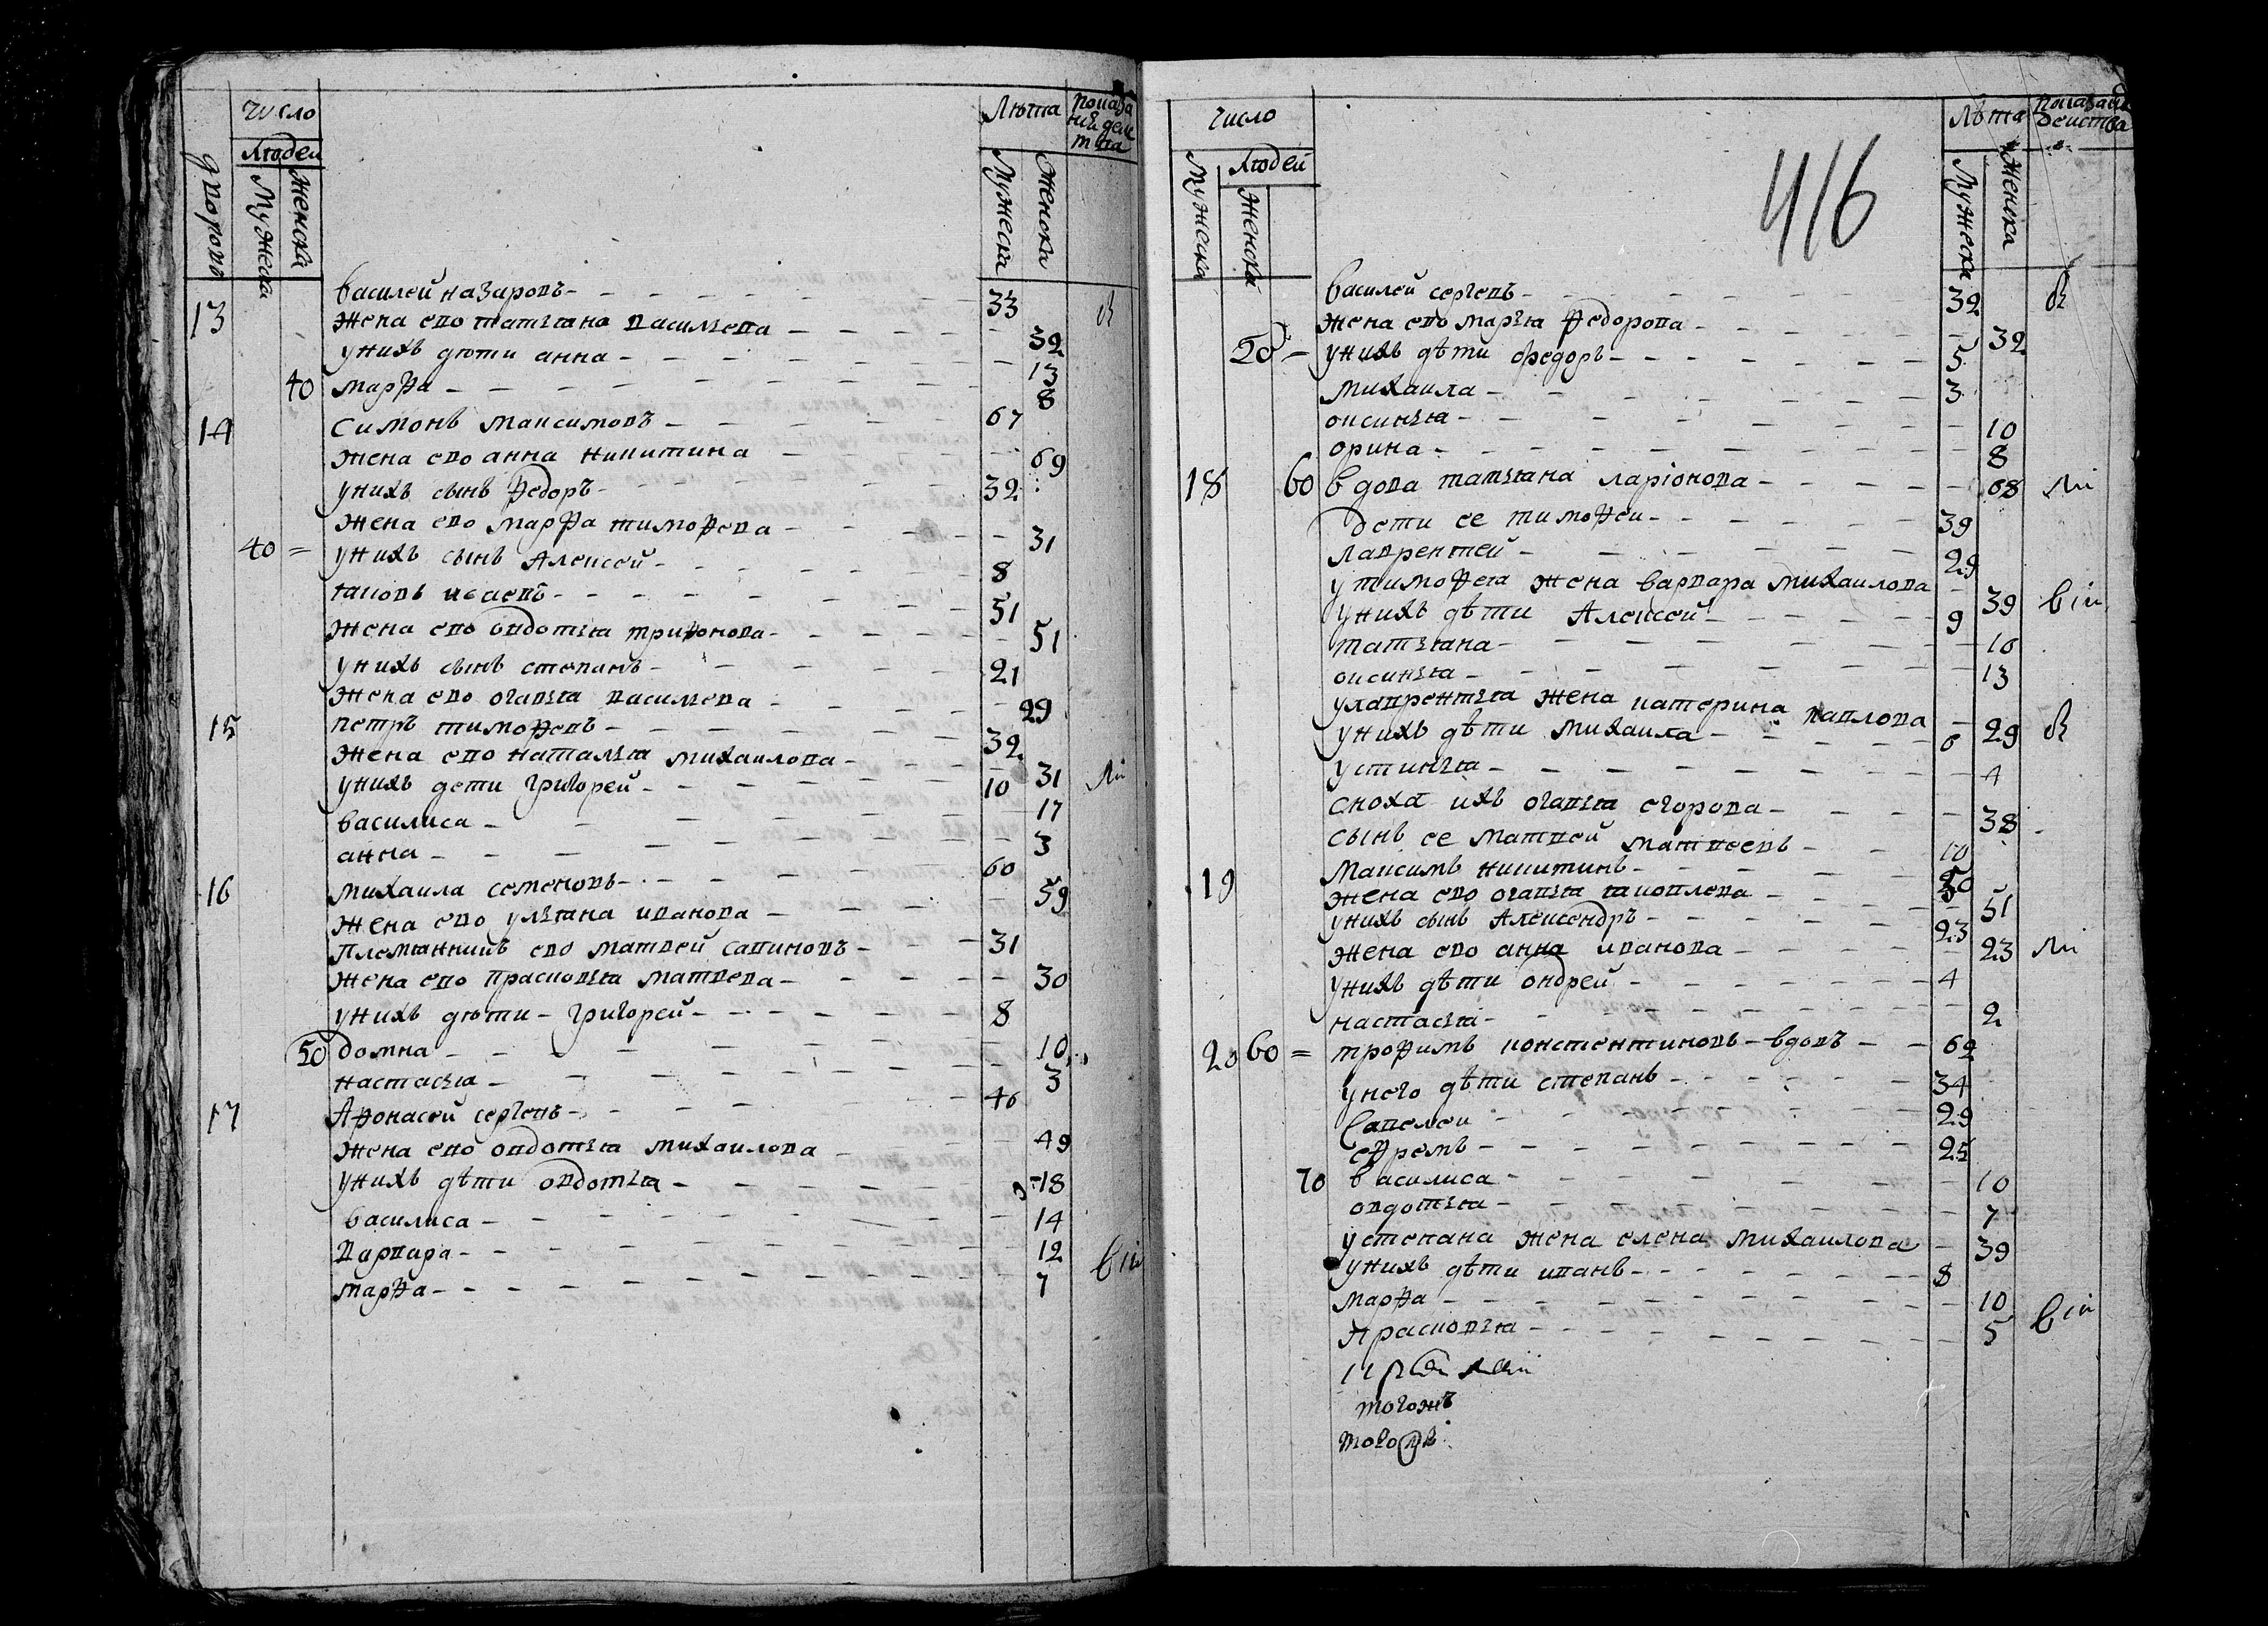 число
Людей
дворовъ
Мужеска
женска
Лѣта
показа
ние деи
тва
Мужеска
Женска
13 василей назаровъ 33
жена ево татьяна васильева 32
у нихъ дѣти анна 13
40 марѳа 8
14 симонъ максимовъ 67
жена ево анна никитина 69
у нихъ сынъ ѳедоръ 32
жена ево марѳа тимоѳева 31
40 = у нихъ сынъ Алексей 8
яковъ исаевъ 51
жена ево овдотья триѳонова 51
у нихъ сынъ степанъ 21
жена ево огавья васильева 29
15 петръ тимоѳевъ 32
жена ево наталья михаилова 31
у нихъ дети григорей 10
василиса 17
анна 3
16 михаила семеновъ 60
жена ево ульяна иванова 59
племянникъ ево матвей савиновъ 31
жена ево прасковья матвева 30
у нихъ дѣти григорей 8
50 домна 10
настасья 3
17 Аѳонасей сергевъ 46
жена ево овдотья михаилова 49
у нихъ дѣти овдотья 18
василиса 14
варвара 12
марѳа 7
416
число
Людей
Мужеска
Женска
Лѣта
показания
деиства
Мужеска
Женска
василей сергевъ 32
жена ево марья ѳедорова 32
50 – у нихъ дѣти ѳедоръ 5
михаила 3
оксинья 10
орина 8
18 60 вдова татьяна ларіонова 68
дети ее тимоѳеи 39
лаврентей 29
у тимоѳея жена варвара михаилова 39
у нихъ дѣти Алексей 9
татьяна 16
оксинья 13
у лаврентья жена катерина павлова 29
у нихъ дѣти михаила 6
устинья 4
сноха ихъ огавья егорова 38
сынъ ее матвей матвеевъ 10
19 максимъ никитинъ 50
жена ево огавья яковлева 51
у нихъ сынъ Александръ 23
жена ево анна иванова 23
у нихъ дѣти ондрей 4
настасья 2
20 60 = троѳимъ констентиновъ – вдовъ 62
у него дѣти степанъ 34
савелеи 29
еѳремъ 25
70 василиса 10
овдотья 7
у степана жена елена михаилова 39
у нихъ дѣти иванъ 8
марѳа 10
прасковья 5
тогожъ